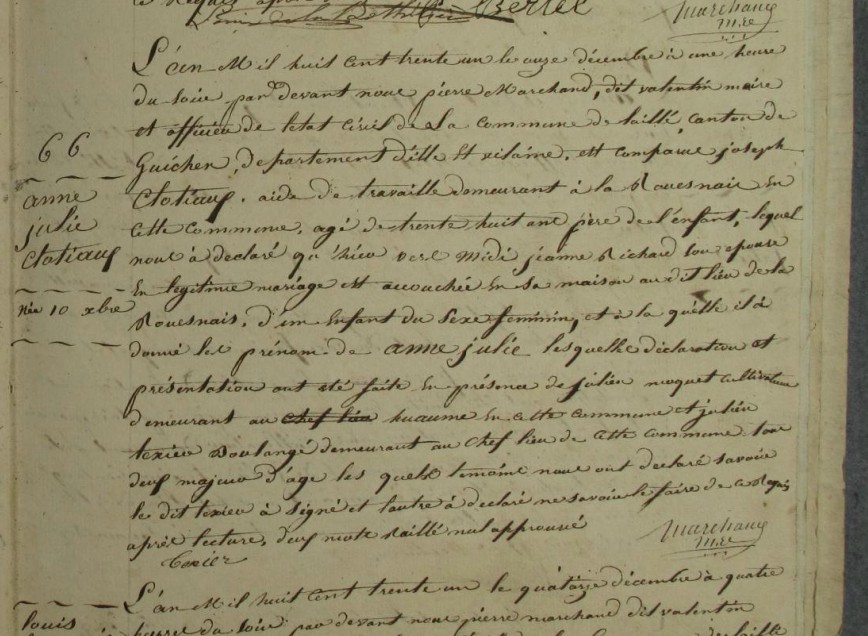 Bertel
Marchand
mre
L'an Mil huit Cent trente un le onze décembre à une heure
du soir pardevant nous pierre Marchand, dit valentin maire
et officier de letat Civil de La Commune de Laillé, canton de
Guichen, departement d'ille Et vilaine, est comparue joseph
Clotiaux, aide de travaille demeurant à la Rouesnais En
Cette Commune, agé de trente huit ans père de l'enfant, lequel
nous à declaré qu'hier vers midi jeanne Richard son epouse
En legitime mariage est accouchée En sa maison au dit lieu de la
Rouesnais, d'un Enfant du Sexe feminin, et à la quelle il à
donné les prénom de anne julie lesquelles déclaration et
présentation ont été faite En présence de julien noquet Cultivateur
demeurant au chef lieu huaume En cette commune et julien
texier Boulangé demeurant au Chef lieu de Cette Commune tous
deux majeur d'age les quels temoins nous ont declaré savoir
le dit texier à signé et lautre à déclaré ne savoir le faire de ce Requis
après lecture, deux mots Raillé nul approuvé
texier
Marchand
mre
66
anne
julie
Clotiaux
Née 10 xbre
L'an Mil huit Cent trente un le quatorze décembre à quatre
heures du soir par devant nous pierre marchand dit valentin
louis